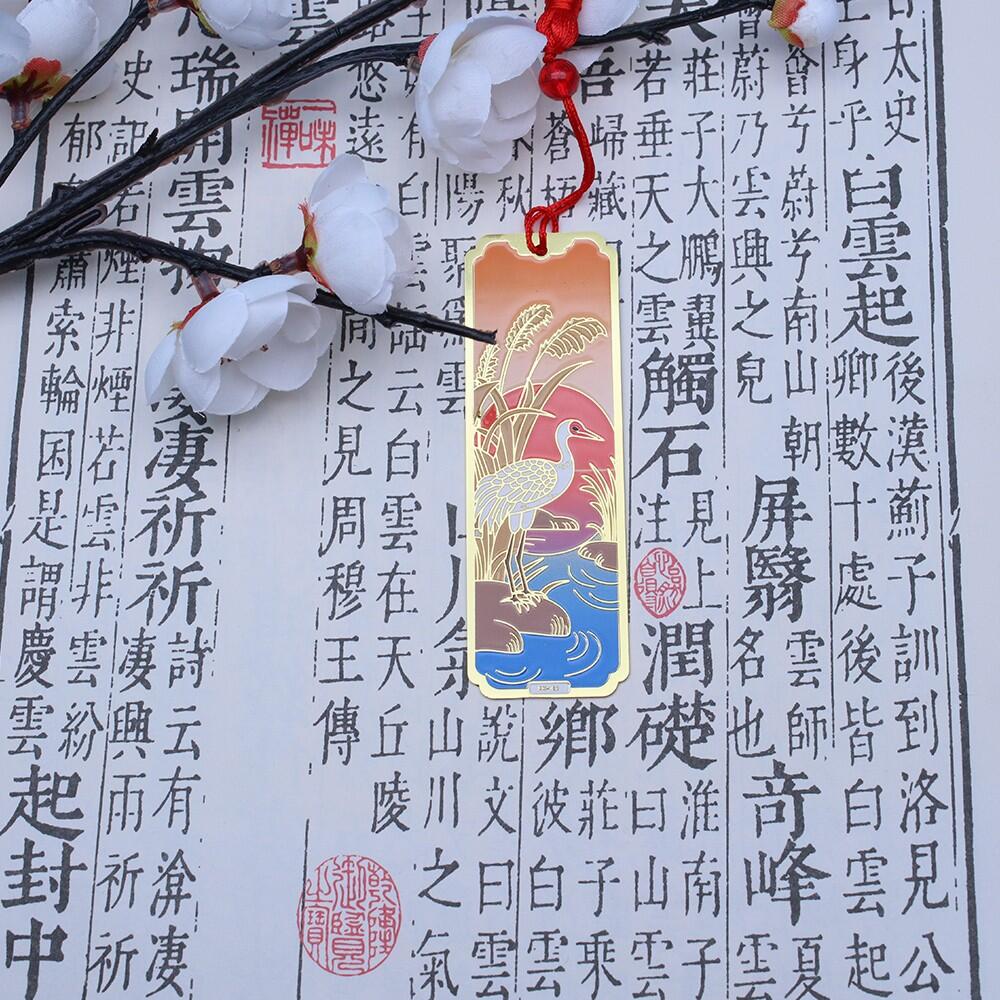 古太史
王身乎
白雲起
後漢薊子訓到洛見公
卿數十處後皆白雲起
兮蔚兮南山朝
蔚乃雲興之皃
屏翳
雲師
名也
奇峰
夏
雲
莊子大鵬翼
若垂天之雲
觸石
見上
注
潤礎
淮南子
曰山雲
歸藏
蒼梧
鄉
莊子乘
彼白雲
秋
說文曰雲
山川之氣
有白雲謡云白雲在天丘陵
悠遠
間之見周穆王傳
一味禪
瑞開雲物
淒祈祈
詩云有渰淒
淒興雨祈祈
史記若煙非煙若雲非雲紛
郁蕭索輪囷是謂慶雲
起封中